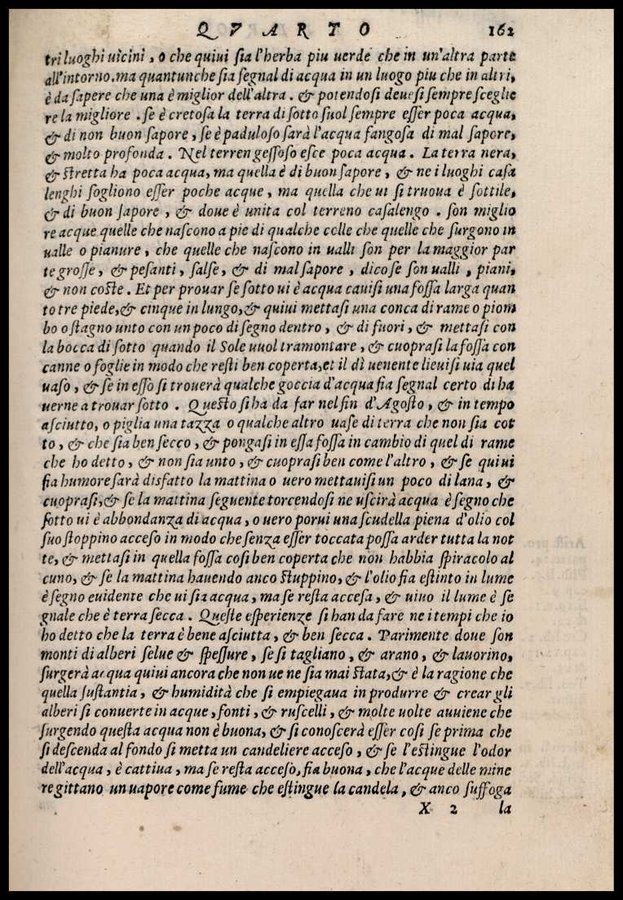 QVARTO 162
tri luoghi uicini, o che quiui sia l'herba piu uerde che in un'altra parte
all'intorno. ma quantunche sia segnal di acqua in un luogo piu che in altri,
è da sapere che una è miglior dell'altra. & potendosi deuesi sempre sceglie
re la migliore. se è cretosa la terra di sotto suol sempre esser poca acqua,
& di non buon sapore, se è paduloso sarà l'acqua fangosa di mal sapore,
& molto profonda. Nel terren gessoso esce poca acqua. La terra nera,
& stretta ha poca acqua, ma quella è di buon sapore, & ne i luoghi casa
lenghi sogliono esser poche acque, ma quella che ui si truoua è sottile,
& di buon sapore, & doue è unita col terreno casalengo. son miglio
re acque quelle che nascono a pie di qualche colle che quelle che surgono in
ualle o pianure, che quelle che nascono in ualli son per la maggior par
te grosse, & pesanti, salse, & di mal sapore, dico se son ualli, piani,
& non coste. Et per prouar se sotto ui è acqua cauisi una fossa larga quan
to tre piede, & cinque in lungo, & quiui mettasi una conca di rame o piom
bo o stagno unto con un poco di segno dentro, & di fuori, & mettasi con
la bocca di sotto quando il Sole uuol tramontare, & cuoprasi la fossa con
canne o foglie in modo che resti ben coperta, et il dì uenente lieuisi uia quel
uaso, & se in esso si trouerà qualche goccia d'acqua fia segnal certo di ha
uerne a trouar sotto. Questo si ha da far nel fin d'Agosto, & in tempo
asciutto, o piglia una tazza o qualche altro uase di terra che non sia cot
to, & che sia ben secco, & pongasi in essa fossa in cambio di quel di rame
che ho detto, & non sia unto, & cuoprasi ben come l'altro, & se qui ui
fia humore sarà disfatto la mattina o uero mettauisi un poco di lana, &
cuoprasi, & se la mattina seguente torcendosi ne uscirà acqua è segno che
sotto ui è abbondanza di acqua, o uero porui una scudella piena d'olio col
suo stoppino acceso in modo che senza esser toccata possa arder tutta la not
te, & mettasi in quella fossa cosi ben coperta che non habbia spiracolo al
cuno, & se la mattina hauendo anco stuppino, & l'olio fia estinto in lume
è segno euidente che ui sia acqua, ma se resta accesa, & uiuo il lume è se
gnale che è terra secca. Queste esperienze si han da fare ne i tempi che io
ho detto che la terra è bene asciutta, & ben secca. Parimente doue son
monti di alberi selue & spessure, se si tagliano, & arano, & lauorino,
surgerà acqua quiui ancora che non ue ne sia mai stata, & è la ragione che
quella sustantia, & humidità che si empiegaua in produrre & crear gli
alberi si conuerte in acque, fonti, & ruscelli, & molte uolte auuiene che
surgendo questa acqua non è buona, & si conoscerà esser cosi se prima che
si descenda al fondo si metta un candeliere acceso, & se l'estingue l'odor
dell'acqua, è cattiua, ma se resta acceso, fia buona, che l'acque delle mine
re gittano un uapore come fume che estingue la candela, & anco suffoga
X 2 la